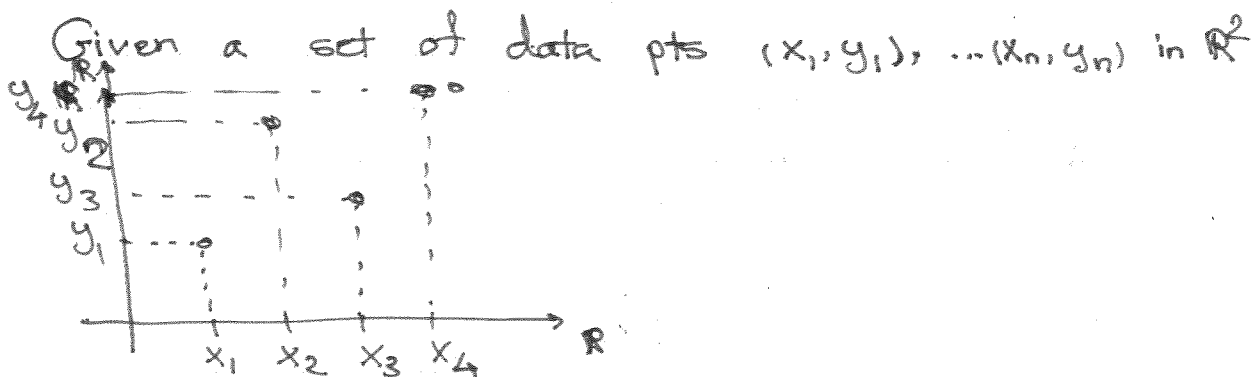 Given a set of data pts (x₁, y₁), ...(xₙ, yₙ) in ℝ²
ℝ
y₄
y₂
y₃
y₁
ℝ
x₁ x₂ x₃ x₄